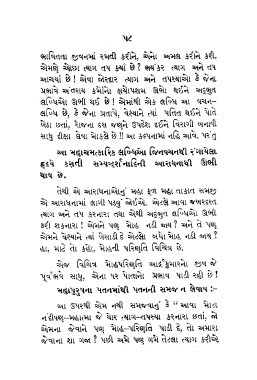 ૫૮
ભાવિતતા જીવનમાં રમતી કરીને, એનો અમલ કરીને કરી.
એમણે ઓછા ત્યાગ તપ કર્યા છે? ભયંકર ત્યાગ અને તપ
આચર્યાં છે! એવા જોરદાર ત્યાગ અને તપસ્યાઓ કે જેના
પ્રભાવે અંતરાય કર્મોનો ક્ષયોપશમ ઊભો થઈને અદ્ભુત
લબ્ધિઓ ઊભી થઈ છે! એમાંથી એક લબ્ધિ આ વચન–
લબ્ધિ, છે, કે જેના પ્રતાપે, વેશ્યાને ત્યાં પતિત થઈને પોતે
બેઠા છતાં, રોજના દસ જણને ઉપદેશ દઈને વિરાગી બનાવી
સાધુ દીક્ષા લેવા મોકલે છે!! આ કલ્પનામાં નહિ આવે, પરંતુ
આ મહાચમત્કારિક લબ્ધિઓ જિનવચનથી રંગાયેલા
હૃદયે કરાતી સમ્યગ્દર્શનાદિની આરાધનાથી ઊભી
થાય છે.
તેથી એ આરાધનાઓનું મહા ફળ મહા તાકાત સમજી
એ આરાધનામાં લાગી પડવું જોઈએ. એટલે આવા જબરદસ્ત
ત્યાગ અને તપ કરનારા તથા એથી અદ્ભુત લબ્ધિઓ ઊભી
કરી શકનારા! એમને પણ મોહ નડી જાય? અને તે પણ
એમને વેશ્યાને ત્યાં બેસાડી દે એટલો બધો મોહ નડી જાય?
હા, માટે તો કહો, મોહની પરિણતિ વિચિત્ર છે.
એજ વિચિત્ર મોહપરિણતિ આર્દ્રકુમારનો જીવ જે
પૂર્વભવે સાધુ, એના પર પોતાનો પ્રભાવ પાડી રહી છે!
મહાપુરુષના પતનમાંથી પતનની સમજ ન લેવાય :–
આ ઉપરથી એમ નથી સમજવાનું કે “આવા મોટા
નંદીષણ–મહાત્મા જે ઘોર ત્યાગ–તપસ્યા કરનારા છતાં, જો
એમના જેવાને પણ મોહ–પરિણતિ પાડી દે, તો અમારા
જેવાના શા ગજા? પછી અમે પણ ગમે તેટલા ત્યાગ કરીએ